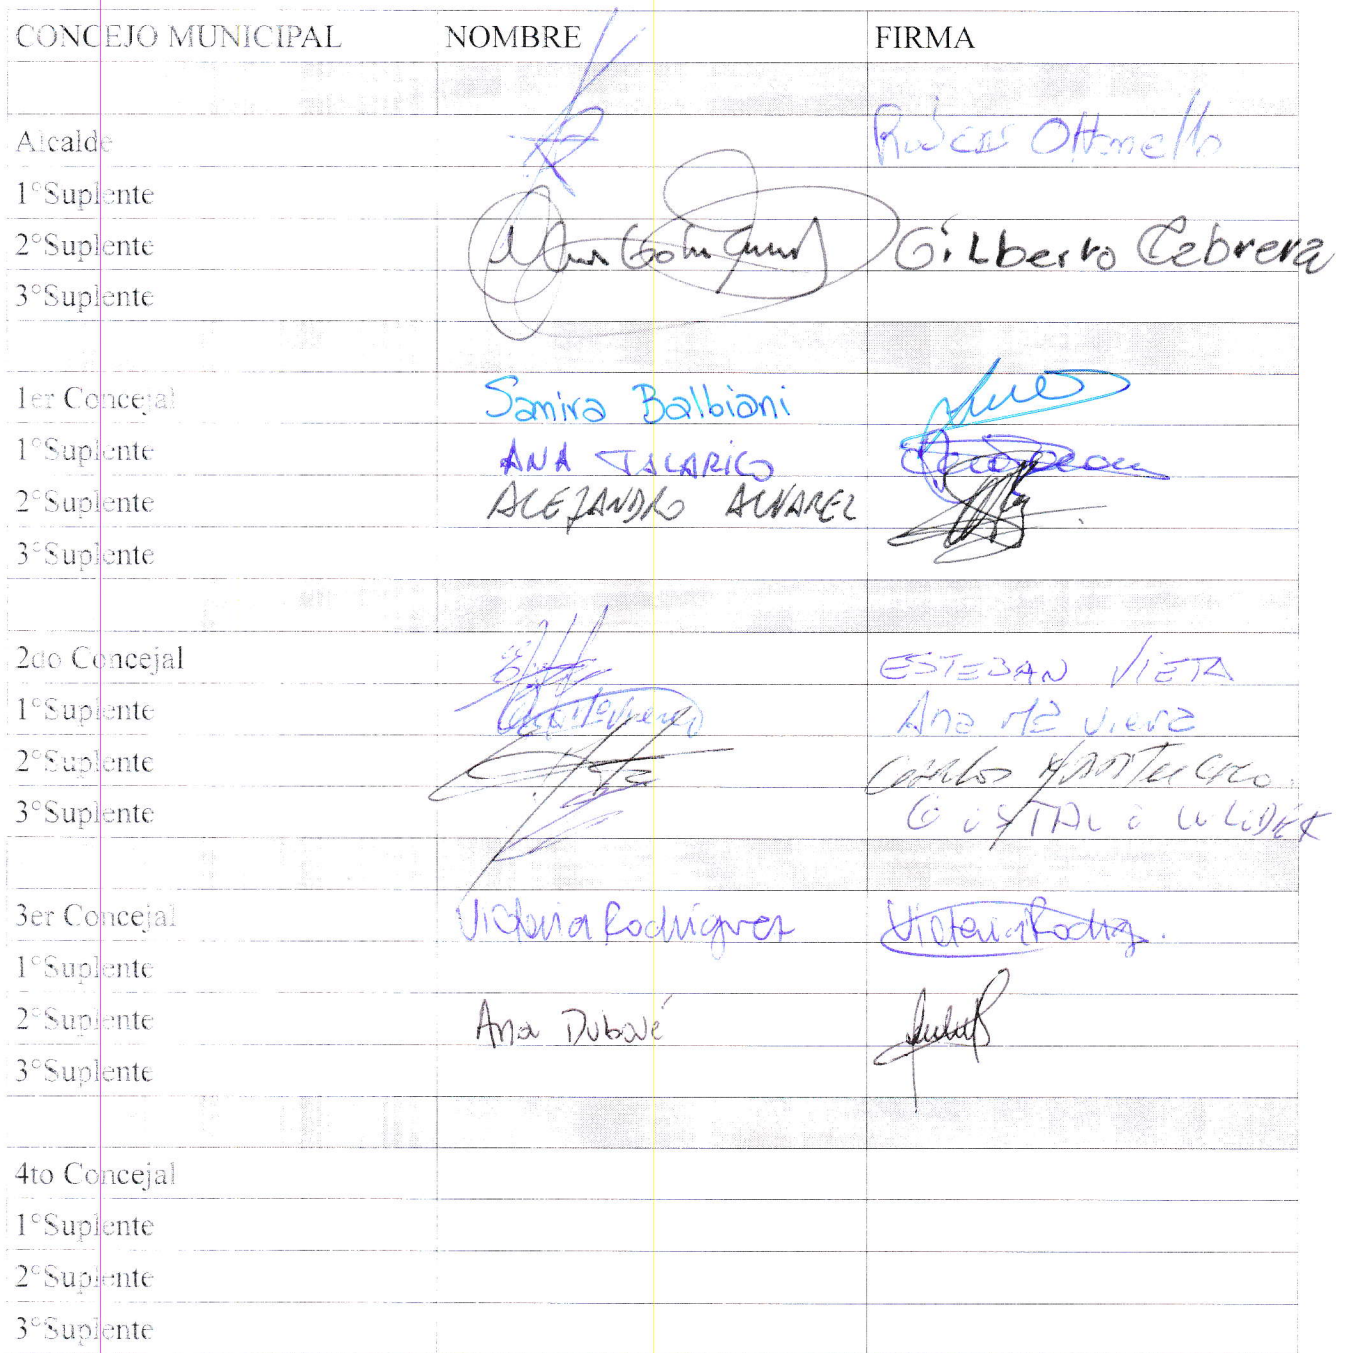 CONCEJO MUNICIPAL NOMBRE FIRMA
Alcalde Ottonello
1°Suplente
2°Suplente Gilberto Cabrera
3°Suplente
1er Concejal Samira Balbiani
1°Suplente ANA TALARICO
2°Suplente ALEJANDRO ALVAREZ
3°Suplente
2do Concejal ESTEBAN VIETA
1°Suplente Ana Ma Viera
2°Suplente Carlos
3°Suplente
3er Concejal Victoria Rodriguez Victoria Rodrig.
1°Suplente
2°Suplente Ana Dubové
3°Suplente
4to Concejal
1°Suplente
2°Suplente
3°Suplente